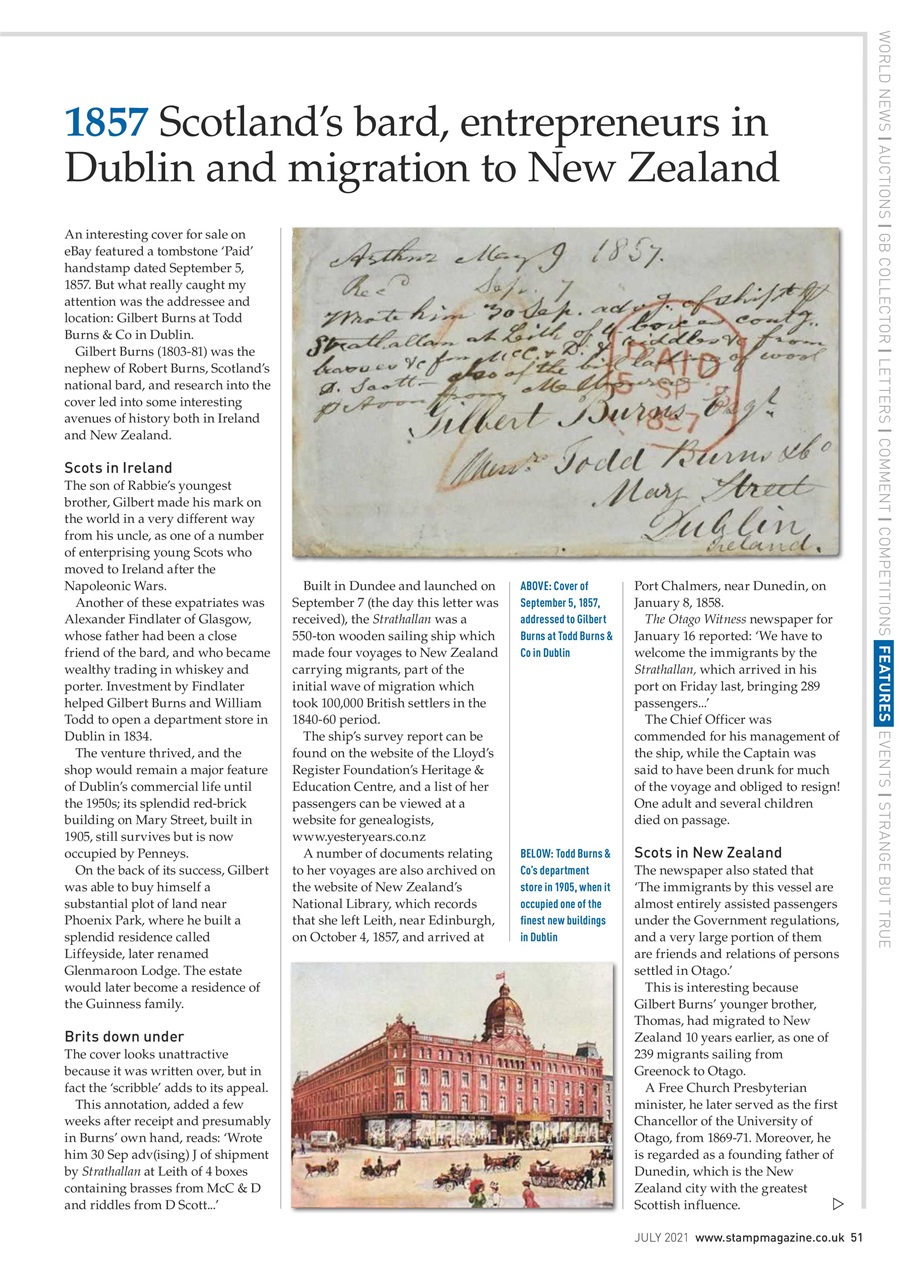 1857 Scotland’s bard, entrepreneurs in
Dublin and migration to New Zealand
An interesting cover for sale on
eBay featured a tombstone ‘Paid’
handstamp dated September 5,
1857. But what really caught my
attention was the addressee and
location: Gilbert Burns at Todd
Burns & Co in Dublin.
Gilbert Burns (1803-81) was the
nephew of Robert Burns, Scotland’s
national bard, and research into the
cover led into some interesting
avenues of history both in Ireland
and New Zealand.
Scots in Ireland
The son of Rabbie’s youngest
brother, Gilbert made his mark on
the world in a very different way
from his uncle, as one of a number
of enterprising young Scots who
moved to Ireland after the
Napoleonic Wars.
Another of these expatriates was
Alexander Findlater of Glasgow,
whose father had been a close
friend of the bard, and who became
wealthy trading in whiskey and
porter. Investment by Findlater
helped Gilbert Burns and William
Todd to open a department store in
Dublin in 1834.
The venture thrived, and the
shop would remain a major feature
of Dublin’s commercial life until
the 1950s; its splendid red-brick
building on Mary Street, built in
1905, still survives but is now
occupied by Penneys.
On the back of its success, Gilbert
was able to buy himself a
substantial plot of land near
Phoenix Park, where he built a
splendid residence called
Liffeyside, later renamed
Glenmaroon Lodge. The estate
would later become a residence of
the Guinness family.
Brits down under
The cover looks unattractive
because it was written over, but in
fact the ‘scribble’ adds to its appeal.
This annotation, added a few
weeks after receipt and presumably
in Burns’ own hand, reads: ‘Wrote
him 30 Sep adv(ising) J of shipment
by Strathallan at Leith of 4 boxes
containing brasses from McC & D
and riddles from D Scott...’
Arthur May 9 1857.
Recd Sep. 7
Wrote him 30 Sep. advg. of shipt
Strathallan at Leith of 4 boxes contg.
brasses &c fm McC. & D. & riddles &c from
D. Scott also of the of wool
from Melbourne
PAID
5 SP 5
1857
Gilbert Burns Esqr.
Messrs. Todd Burns & Co
Mary Street
Dublin
Ireland.
Built in Dundee and launched on
September 7 (the day this letter was
received), the Strathallan was a
550-ton wooden sailing ship which
made four voyages to New Zealand
carrying migrants, part of the
initial wave of migration which
took 100,000 British settlers in the
1840-60 period.
The ship’s survey report can be
found on the website of the Lloyd’s
Register Foundation’s Heritage &
Education Centre, and a list of her
passengers can be viewed at a
website for genealogists,
www.yesteryears.co.nz
A number of documents relating
to her voyages are also archived on
the website of New Zealand’s
National Library, which records
that she left Leith, near Edinburgh,
on October 4, 1857, and arrived at
ABOVE: Cover of
September 5, 1857,
addressed to Gilbert
Burns at Todd Burns &
Co in Dublin
BELOW: Todd Burns &
Co’s department
store in 1905, when it
occupied one of the
finest new buildings
in Dublin
Port Chalmers, near Dunedin, on
January 8, 1858.
The Otago Witness newspaper for
January 16 reported: ‘We have to
welcome the immigrants by the
Strathallan, which arrived in his
port on Friday last, bringing 289
passengers...’
The Chief Officer was
commended for his management of
the ship, while the Captain was
said to have been drunk for much
of the voyage and obliged to resign!
One adult and several children
died on passage.
Scots in New Zealand
The newspaper also stated that
‘The immigrants by this vessel are
almost entirely assisted passengers
under the Government regulations,
and a very large portion of them
are friends and relations of persons
settled in Otago.’
This is interesting because
Gilbert Burns’ younger brother,
Thomas, had migrated to New
Zealand 10 years earlier, as one of
239 migrants sailing from
Greenock to Otago.
A Free Church Presbyterian
minister, he later served as the first
Chancellor of the University of
Otago, from 1869-71. Moreover, he
is regarded as a founding father of
Dunedin, which is the New
Zealand city with the greatest
Scottish influence.
WORLD NEWS | AUCTIONS | GB COLLECTOR | LETTERS | COMMENT | COMPETITIONS FEATURES EVENTS | STRANGE BUT TRUE
JULY 2021 www.stampmagazine.co.uk 51